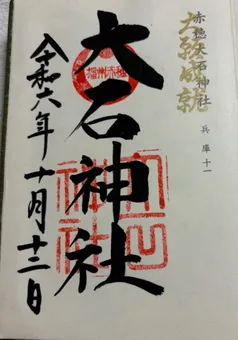 赤穂大石神社
兵庫十一
大願成就
播州赤穂
大石神社
令和六年十月十二日